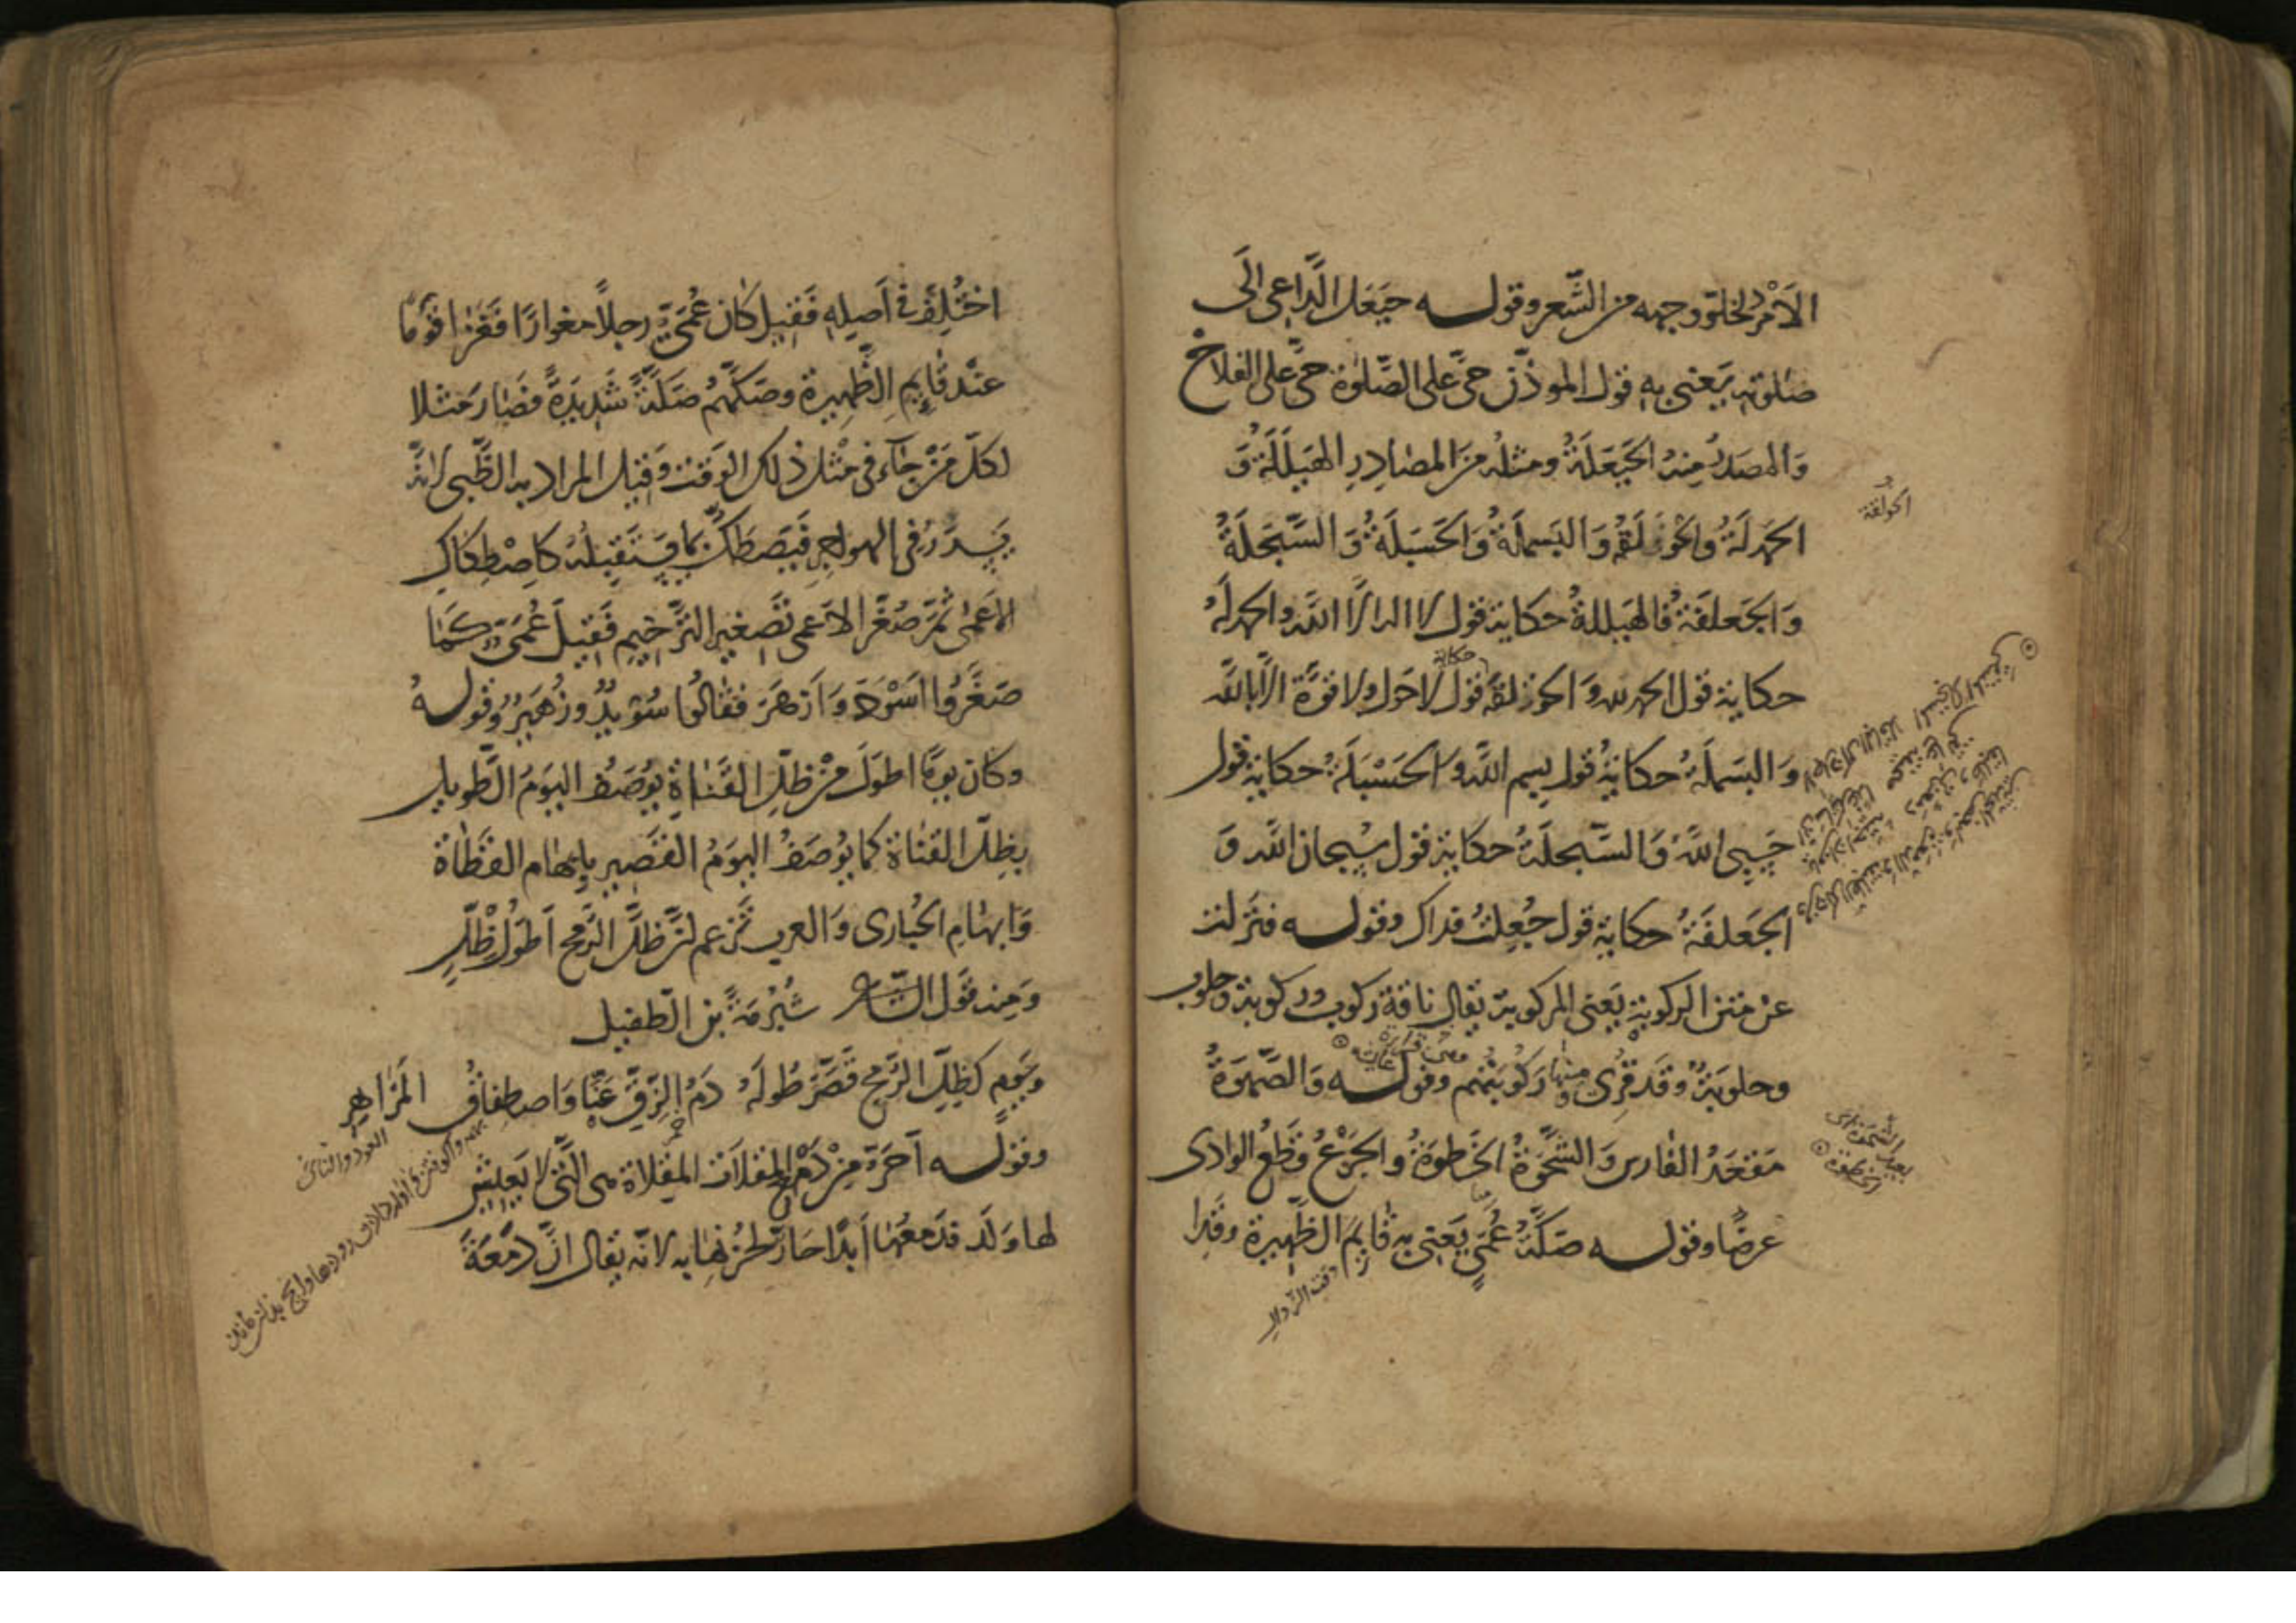 الأَمْرُ لخلوّ وجهه من الشَّعر وقوله حَيْعَلَ الدَّاعِى الَى
صَلوته يَعْنى بِهِ قول المؤذّن حىَّ على الصَّلوة حىَّ على الفلاح
وَالمصدرُ مِنه الحَيْعَلَةُ ومثلهُ مِنَ المصادِرِ الهَيْلَلَةُ وَ
الحَمْدلَةُ وَالحَوْلَقَةُ وَالبَسملَةُ وَالحَسْبَلَةُ وَالسَّبْحَلَةُ
وَالجَعلفَةُ فَالهَيْلَلةُ حكاية قول لا اله الّا اللّه والحمدلَةُ
حكاية قول الحمد لله وَالحَوْلقةُ حكاية قول لا حَول ولا قوَّة الّا باللّه
وَالبَسملَةُ حكايةُ قول بِسم اللّه وَالحَسْبَلَةُ حكاية قول
حَسْبِى اللّه وَالسَّبحلَةُ حكاية قول سُبحان اللّه وَ
الجَعلفَةُ حكاية قول جُعِلتُ فداك وقوله فنَزلت
عن متن الركوبةِ يَعنى المركوبة يقال ناقة ركوب وركوبة وحلوب
وحلوبةٌ وقد قُرِئ فمنها رَكُوبَتُهم وقوله وَالصَّهْوَةُ
مَقْعَدُ الفارس وَالشَّحْوَةُ الخَطوةُ والجَزْعُ قَطْعُ الوادى
عرضًا وقوله صَكَّةُ عُمَىٍّ يَعنى به قايِمَ الظَّهِيرة وقد
الحولقة
وقت الزّوال
اختُلِفَ فى اَصلِهِ فَقِيل كان عُمَىٌّ رجلاً مغوارًا فَغَزا قومًا
عند قايِمِ الظَّهِيرة وصكَّهُم صَكَّةً شديدَةً فصَار مَثلا
لكلّ مَنْ جآء فى مثل ذلك الوَقت وقيل المراد به الظَّبى لانّه
يَسْدَرُ فى الهواجِرِ فيَصْطَكُّ بما يستقبِلُه كاصْطِكاك
الاعمى ثمّ صُغّر الاَعمى تَصْغير التَّرخيم فَقِيل عُمَىٌّ كمَا
صَغَّرُوا اَسْوَدَ وَاَزهَرَ فقالوا سُوَيْدٌ وزُهَيْرٌ وقوله
وكان يومًا اطولَ مِنْ ظلّ القَناةِ يُوصَفُ اليَومُ الطَّويل
بظِلّ القَناة كما يُوصَفُ اليَومُ القَصير بابهام القَطاة
وَابهَام الحُبارى وَالعرب تَزعم اَنَّ ظلَّ الرّمح اَطولُ ظِلٍّ
ومنه قَول الشَّاعر شُبْرُمَةَ بن الطُّفيل
ويَومٍ كَظِلِّ الرُّمح قَصَّرَ طُولَهُ دَمُ الزِّقِّ عَنَّا وَاصطِفاقُ المَزاهِرِ
وقوله اَحَرَّ مِنْ دَمْعِ المِقلَات المِقلاة هى الَّتى لا يَعيش
لها وَلَد فدَمعُها اَبدًا حارّ لحُزنها به لانّه يقال انَّ دَمْعَةَ